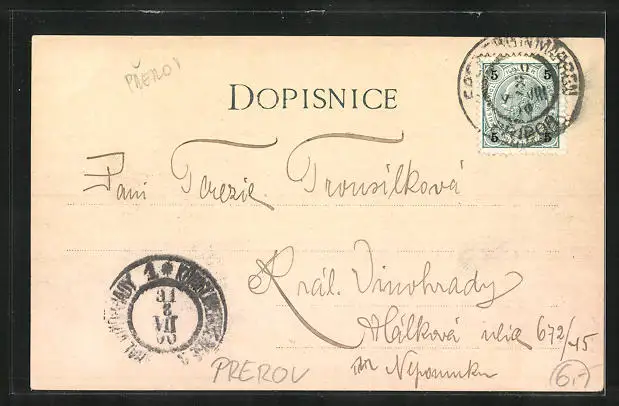 PŘEROV
DOPISNICE
5 5
5 5
PŘIBOR
Paní Terezie Trousílková
Král. Vinohrady
Hálková ulice 672/45
Nepomuku
1
31
8
VII
00
PREROV
6,-